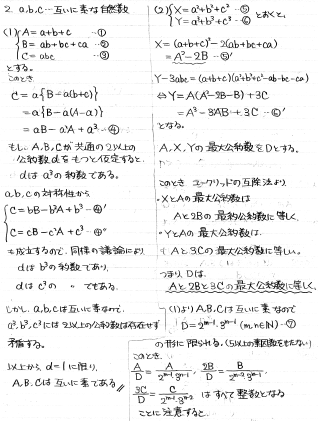 2. a,b,c…互いに素な自然数
(1) { A=a+b+c …①
B=ab+bc+ca …②
C=abc …③
とする。
このとき
C=a{B-a(b+c)}
=a{B-a(A-a)}
=aB-a²A+a³ …④
もし、A,B,Cが共通の2以上の
公約数dをもつと仮定すると、
dはa³の約数である。
a,b,cの対称性から
{ C=bB-b²A+b³ …④'
C=cB-c²A+c³ …④''
も成立するので、同様の議論により
dはb³の約数であり、
dはc³の 〃 でもある。
しかし、a,b,cは互いに素なので、
a³,b³,c³には2以上の公約数は存在せず
矛盾する。
以上から、d=1に限り、
A,B,Cは互いに素である
(2) { X=a²+b²+c² …⑤
Y=a³+b³+c³ …⑥ とおくと、
X=(a+b+c)²-2(ab+bc+ca)
=A²-2B …⑤'
Y-3abc=(a+b+c)(a²+b²+c²-ab-bc-ca)
⇔ Y=A(A²-2B-B)+3C
=A³-3AB+3C …⑥'
となる。
A,X,Yの最大公約数をDとする。
このとき ユークリッドの互除法より
・XとAの最大公約数は
Aと2Bの最大公約数に等しく、
・YとAの最大公約数は、
Aと3Cの最大公約数に等しい。
つまり、Dは、
Aと2Bと3Cの最大公約数に等しく、
(1)よりA,B,Cは互いに素なので
D=2ᵐ⁻¹・3ⁿ⁻¹ (m,n∈N) …⑦
の形に限られる。(5以上の素因数をもたない)
このとき、
A/D=A/(2ᵐ⁻¹・3ⁿ⁻¹), 2B/D=B/(2ᵐ⁻²・3ⁿ⁻¹),
3C/D=C/(2ᵐ⁻¹・3ⁿ⁻²) はすべて整数となる
ことに注意すると、